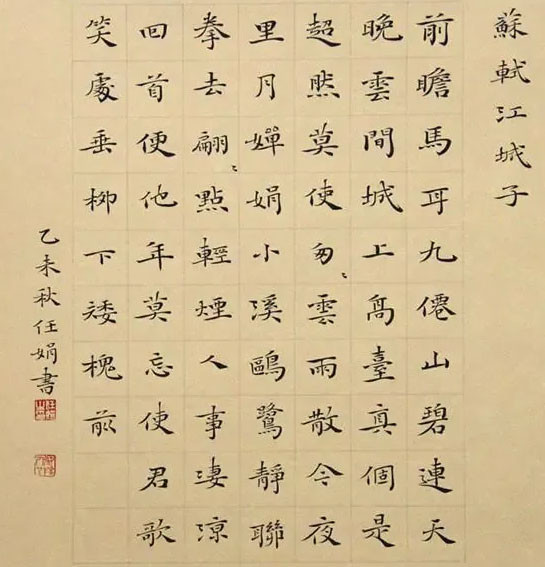 蘇軾江城子
前瞻馬耳九僊山碧連天
晚雲間城上高臺真個是
超然莫使匆〻雲雨散今夜
里月嬋娟小溪鷗鷺靜聯
拳去翩〻點輕煙人事淒涼
回首便他年莫忘使君歌
笑處垂柳下矮槐前
乙未秋任娟書